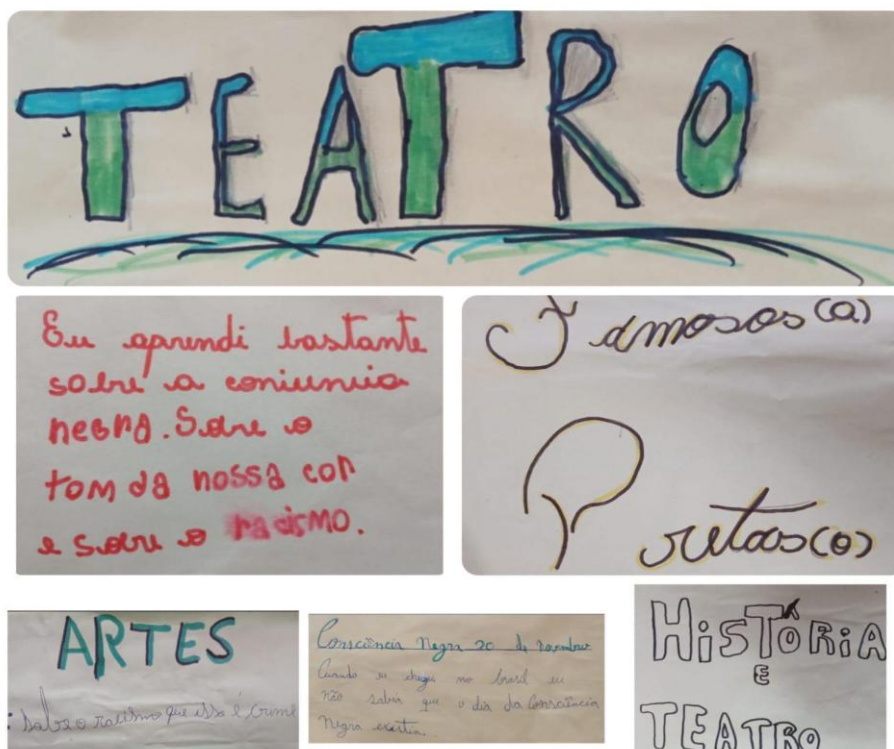 TEATRO
Eu aprendi bastante
sobre a coniencia
negra. Sobre o
tom da nossa cor
e sobre o racismo.
Famosos(a)
Pretas(o)
ARTES
: sobre o racismo que isso é crime
Consciência Negra 20 de novembro
Cuando eu cheguei no brasil eu
não sabia que o dia da Consciência
Negra existia.
HiSTÓRiA
E
TEATRO